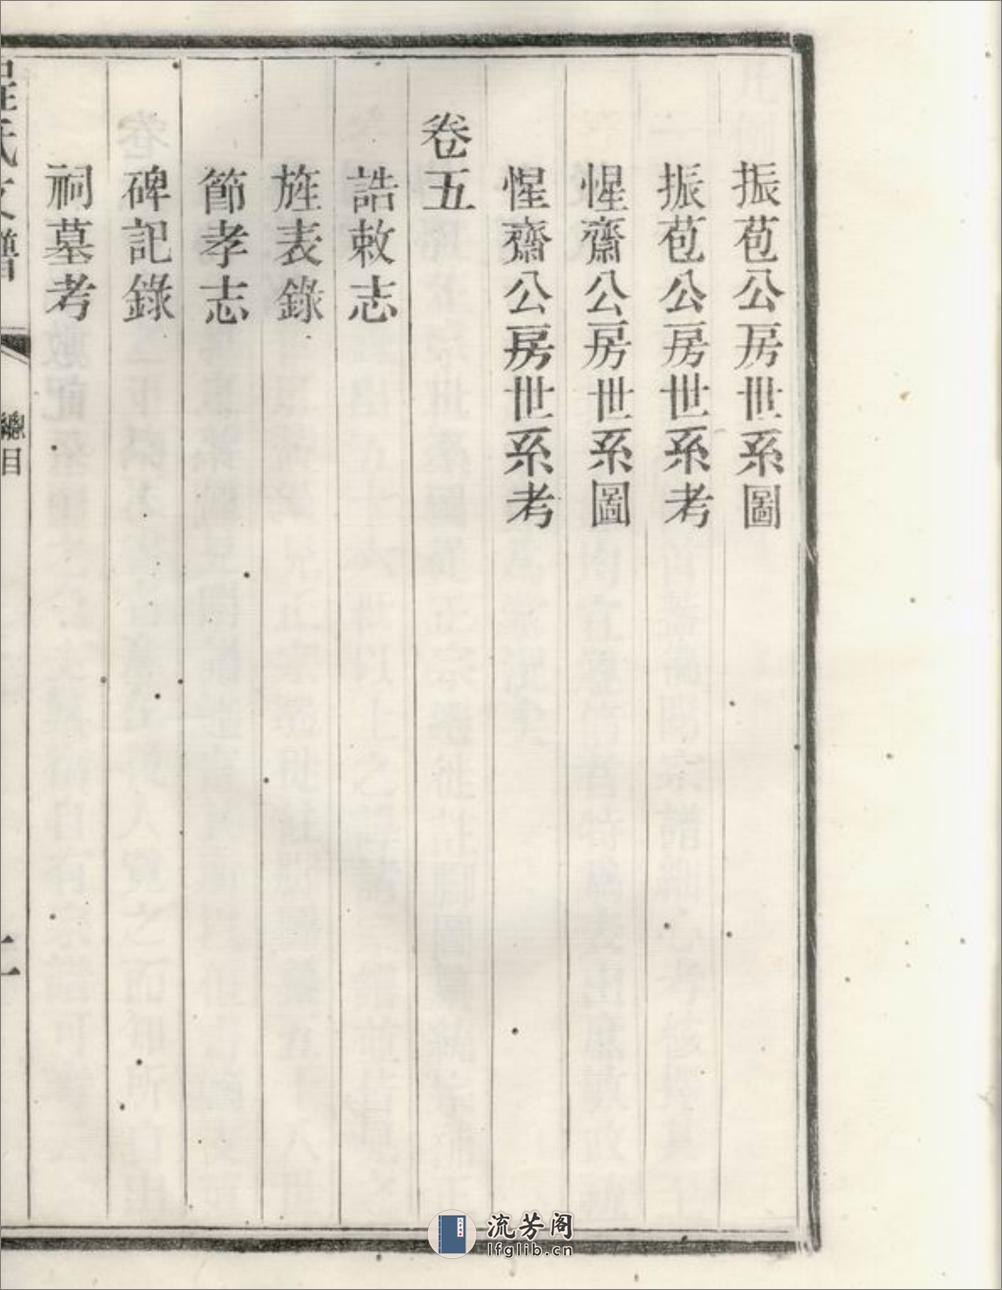 振苞公房世系圖
振苞公房世系考
惺齋公房世系圖
惺齋公房世系考
卷五
誥敕志
旌表錄
節孝志
碑記錄
祠墓考
程氏支譜
總目
二
流芳阁
lfglib.cn